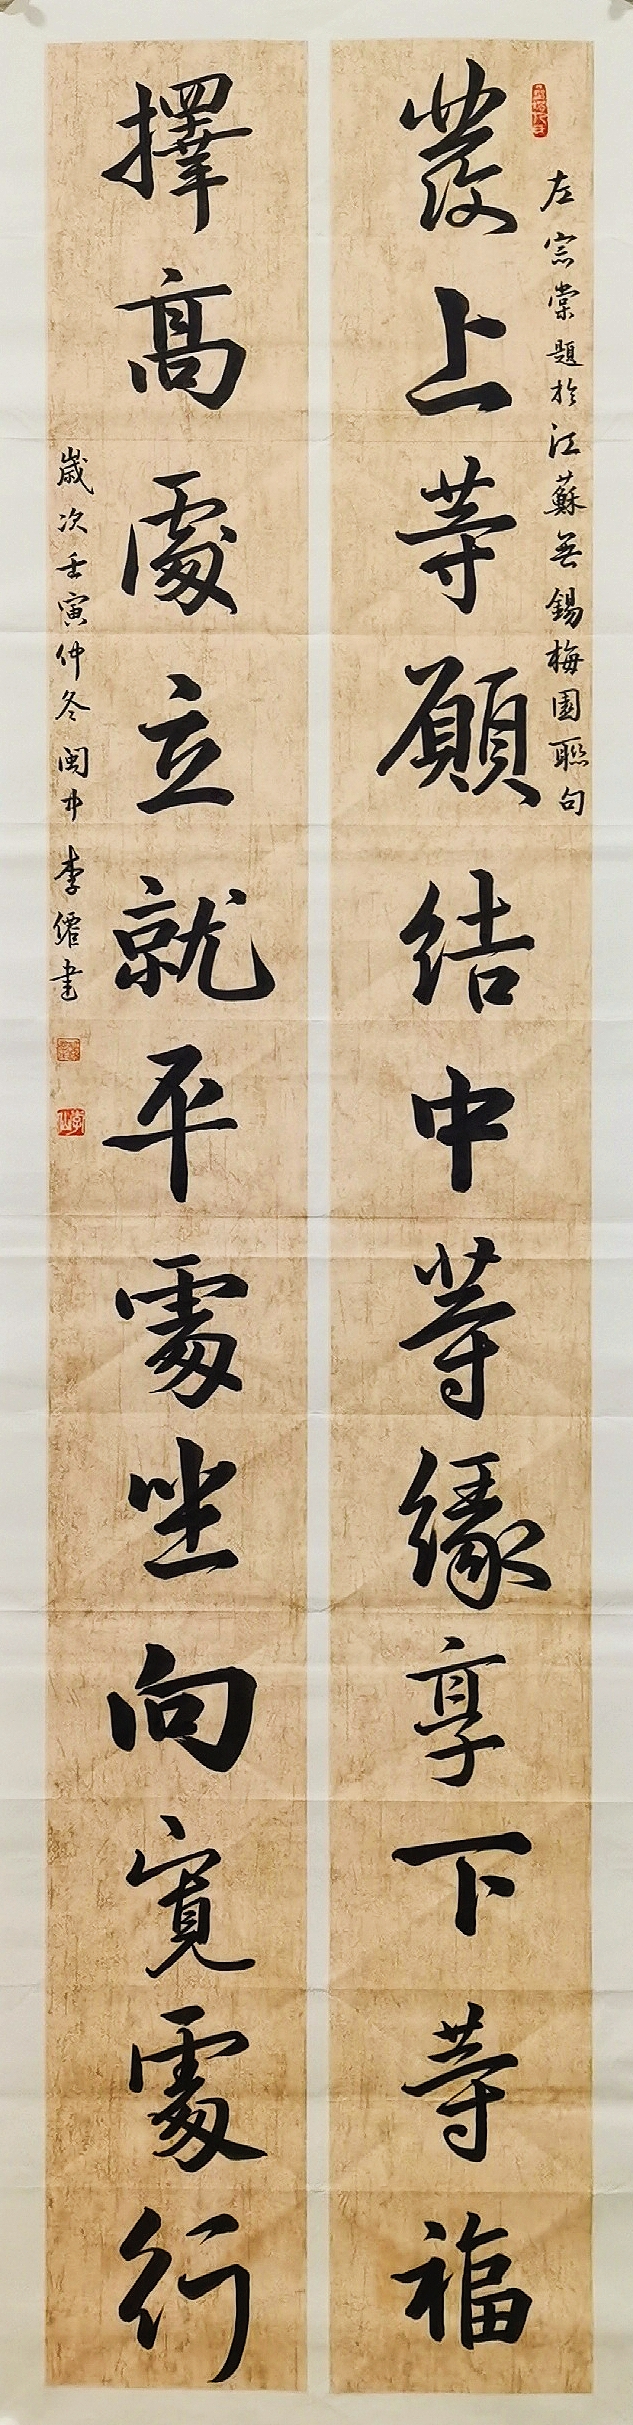 左宗棠題於江蘇無錫梅園聯句
發上等願結中等緣享下等福
擇高處立就平處坐向寬處行
歲次壬寅仲冬閩中李僊書